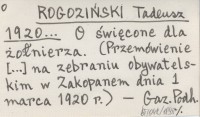 ROGOZIŃSKI Tadeusz
1920... O święcone dla
żołnierza. (Przemówienie
[...] na zebraniu obywatels-
kim w Zakopanem dnia 1
marca 1920 r.) — Gaz. Podh.